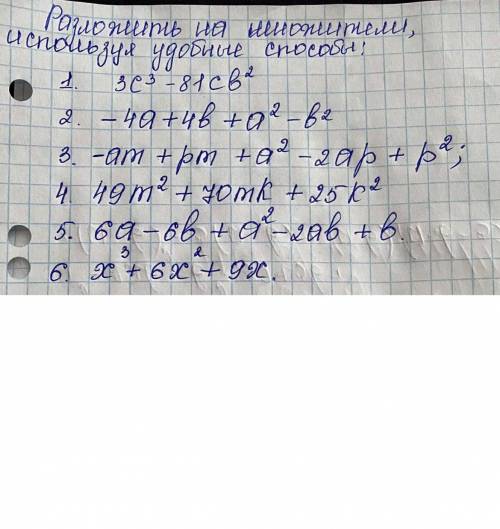 Разложить на множители,
используя удобные способы:
1. 3c³ - 81cb²
2. -4a + 4b + a² - b²
3. -am + pm + a² - 2ap + p²;
4. 49m² + 70mk + 25k²
5. 6a - 6b + a² - 2ab + b.
6. x³ + 6x² + 9x.